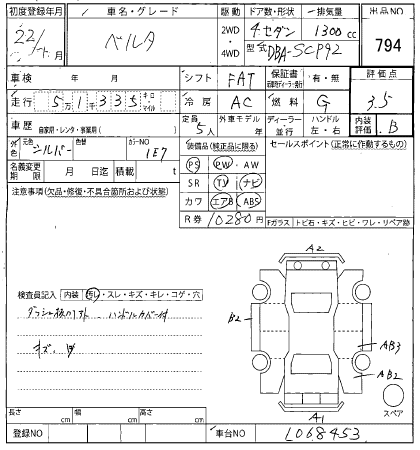 初度登録年月 車名・グレード 駆動 ドア数・形状 排気量 出品NO
22/ ベルタ 2WD・4WD 4.セダン 1300cc 794
型式 DBA-SCP92
車検 年 月 シフト FAT 保証書 有・無 評価点
走行 5万1千335 キロ・マイル 冷房 AC 燃料 G 3.5
車歴 自家用・レンタ・事業用( ) 定員 5人 外車モデル 年 ディーラー・並行 ハンドル 左・右 内装評価 B
外色 元色 シルバー 色替 カラーNO 1E7 装備品(純正品に限る) セールスポイント(正常に作動するもの)
名義変更期限 月 日迄 積載 t PS PW AW
注意事項(欠品・修復・不具合箇所および状態) SR TV ナビ
カワ エアB ABS
R券 10280円 Fガラス トビ石・キズ・ヒビ・ワレ・リペア跡
A2
検査員記入 内装 汚れ・スレ・キズ・キレ・コゲ・穴
B2
ハンドルカバー付
AB3
AB2
スペア
A1
長さ cm 幅 cm 高さ cm
登録NO 車台NO L068453